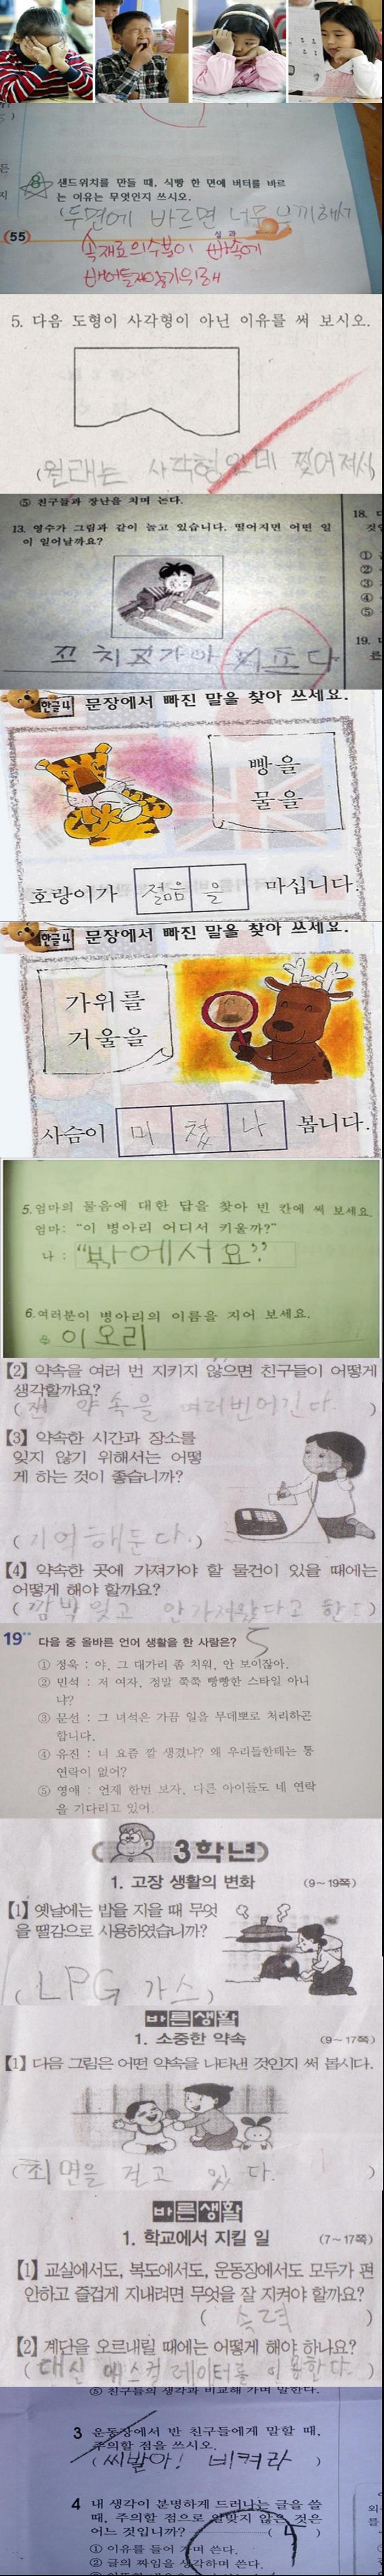 8 샌드위치를 만들 때, 식빵 한 면에 버터를 바르
는 이유는 무엇인지 쓰시오.
(두면에 바르면 너무 느끼해서
실 과
(55)
속재료의수분이 빵속에
배어들지않게하기위해
5. 다음 도형이 사각형이 아닌 이유를 써 보시오.
(원래는 사각형인데 찢어져서)
⑤ 친구들과 장난을 치며 논다.
13. 영수가 그림과 같이 놀고 있습니다. 떨어지면 어떤 일
이 일어날까요?
18.
①
②
③
④
⑤
19.
한글4 문장에서 빠진 말을 찾아 쓰세요.
빵을
물을
호랑이가 젊음 을 마십니다.
한글4 문장에서 빠진 말을 찾아 쓰세요.
가위를
거울을
사슴이 미 쳤 나 봅니다.
5. 엄마의 물음에 대한 답을 찾아 빈 칸에 써 보세요.
엄마: "이 병아리 어디서 키울까?"
나 : "밖에서요"
6. 여러분이 병아리의 이름을 지어 보세요.
이오리
【2】 약속을 여러 번 지키지 않으면 친구들이 어떻게
생각할까요?
(쟨 약속을 여러번어긴다.)
【3】 약속한 시간과 장소를
잊지 않기 위해서는 어떻
게 하는 것이 좋습니까?
(기억해둔다.)
【4】 약속한 곳에 가져가야 할 물건이 있을 때에는
어떻게 해야 할까요?
(깜박잊고 안가져왔다고 한다)
19 다음 중 올바른 언어 생활을 한 사람은? 5
① 정욱 : 야, 그 대가리 좀 치워, 안 보이잖아.
② 민석 : 저 여자, 정말 쭉쭉 빵빵한 스타일 아니
냐?
③ 문선 : 그 녀석은 가끔 일을 무데뽀로 처리하곤
합니다.
④ 유진 : 너 요즘 깔 생겼냐? 왜 우리들한테는 통
연락이 없어?
⑤ 영애 : 언제 한번 보자, 다른 아이들도 네 연락
을 기다리고 있어.
3학년
1. 고장 생활의 변화 (9~19쪽)
【1】 옛날에는 밥을 지을 때 무엇
을 땔감으로 사용하였습니까?
(LPG 가스)
바른생활
1. 소중한 약속 (9~17쪽)
【1】 다음 그림은 어떤 약속을 나타낸 것인지 써 봅시다.
(최면을 걸고 있다.)
바른생활
1. 학교에서 지킬 일 (7~17쪽)
【1】 교실에서도, 복도에서도, 운동장에서도 모두가 편
안하고 즐겁게 지내려면 무엇을 잘 지켜야 할까요?
(속력)
【2】 계단을 오르내릴 때에는 어떻게 해야 하나요?
(대신 에스컬레이터를 이용한다.)
⑤ 친구들의 생각과 비교해 가며 말한다.
3 운동장에서 반 친구들에게 말할 때,
주의할 점을 쓰시오.
(씨발아! 비켜라)
4 내 생각이 분명하게 드러나는 글을 쓸
때, 주의할 점으로 알맞지 않은 것은
어느 것입니까? (4)
① 이유를 들어 가며 쓴다.
② 글의 짜임을 생각하며 쓴다.